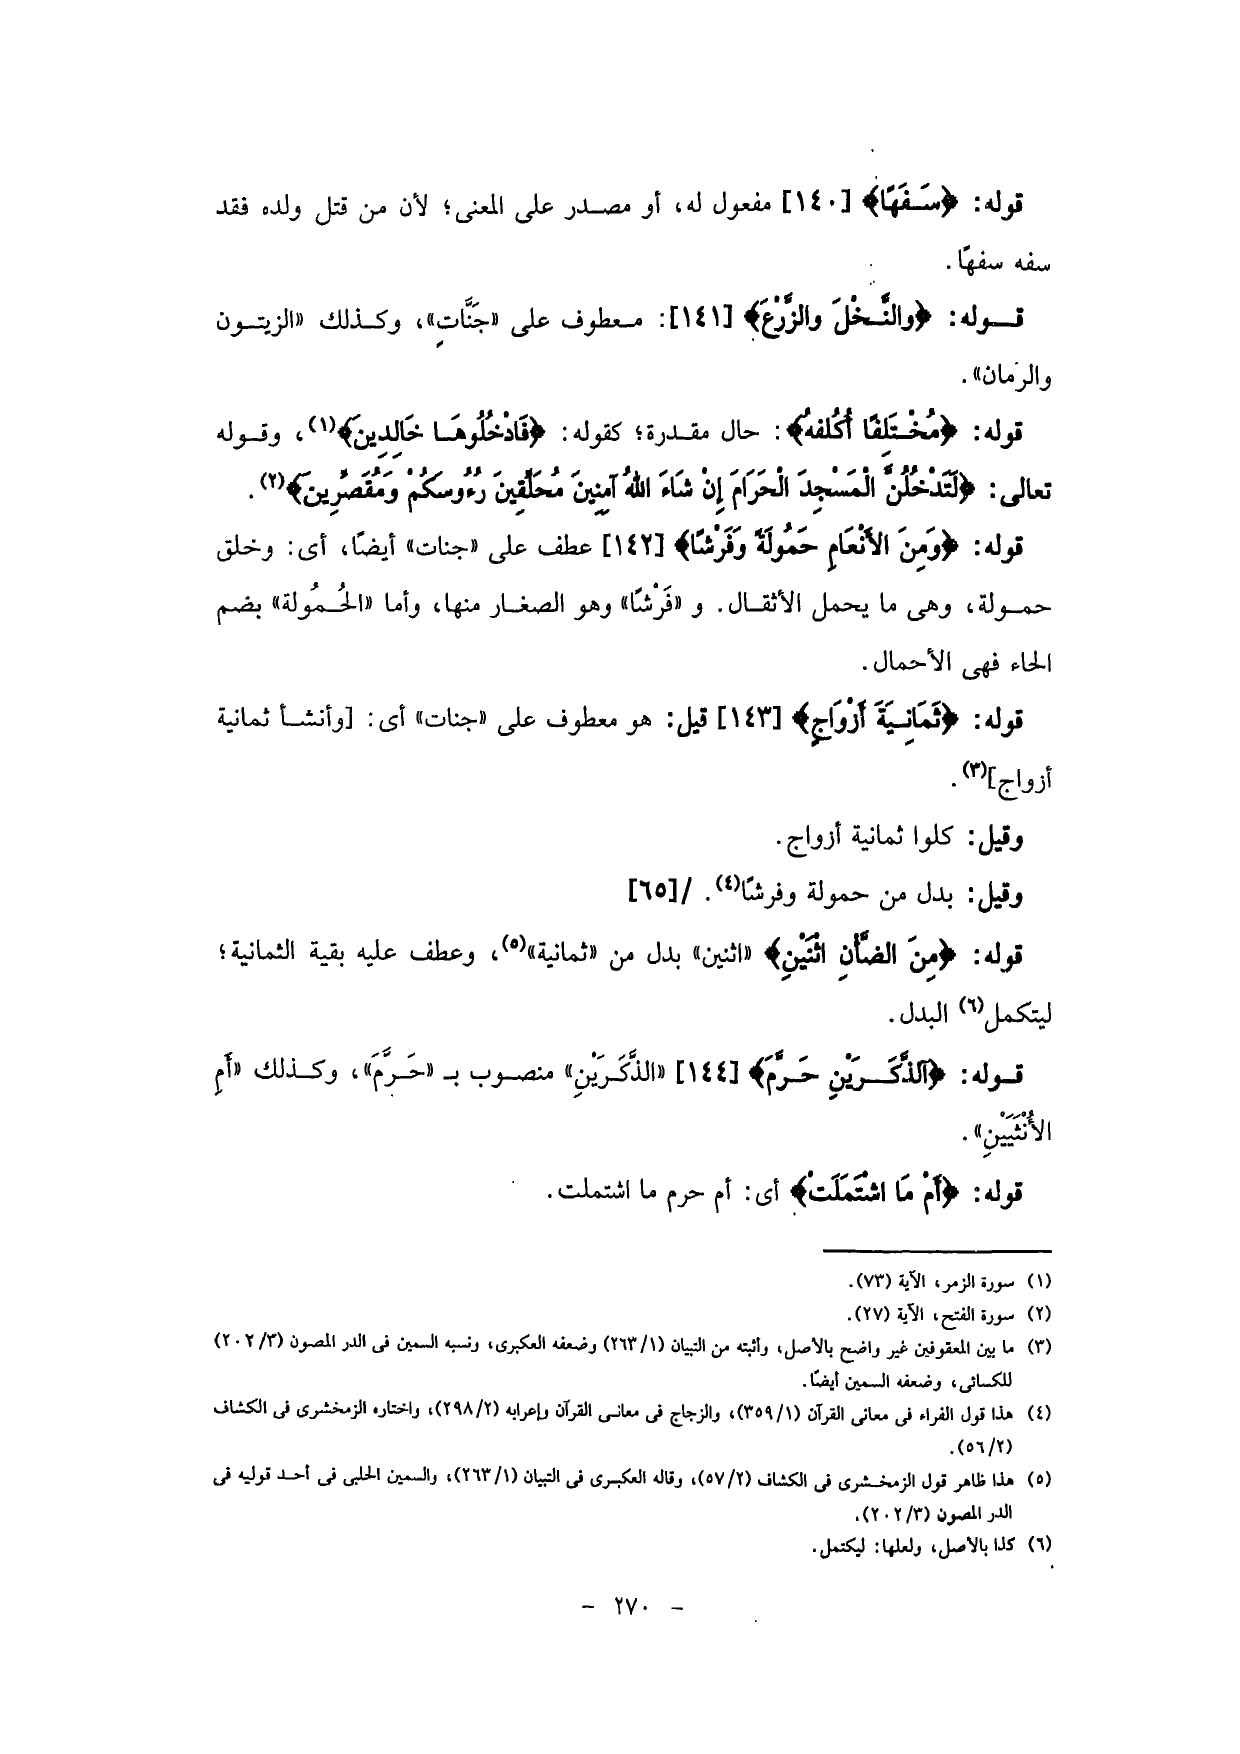 قوله: ﴿سَفَهًا﴾ [١٤٠] مفعول له، أو مصدر على المعنى؛ لأن من قتل ولده فقد
سفه سفهًا.
قوله: ﴿والنَّخْلَ والزَّرْعَ﴾ [١٤١]: معطوف على «جَنَّاتٍ»، وكذلك «الزيتون
والرمان».
قوله: ﴿مُخْتَلِفًا أُكُلفهُ﴾: حال مقدرة؛ كقوله: ﴿فَادْخُلُوهَا خَالِدِينَ﴾(١)، وقوله
تعالى: ﴿لَتَدْخُلُنَّ الْمَسْجِدَ الْحَرَامَ إِنْ شَاءَ اللهُ آمِنِينَ مُحَلِّقِينَ رُءُوسَكُمْ وَمُقَصِّرِينَ﴾(٢).
قوله: ﴿وَمِنَ الأَنْعَامِ حَمُولَةً وَفَرْشًا﴾ [١٤٢] عطف على «جنات» أيضًا، أى: وخلق
حمولة، وهى ما يحمل الأثقال. و «فَرْشًا» وهو الصغار منها، وأما «الحُمُولة» بضم
الحاء فهى الأحمال.
قوله: ﴿ثَمَانِيَةَ أَزْوَاجٍ﴾ [١٤٣] قيل: هو معطوف على «جنات» أى: [وأنشأ ثمانية
أزواج](٣).
وقيل: كلوا ثمانية أزواج.
وقيل: بدل من حمولة وفرشًا(٤). /[٦٥]
قوله: ﴿مِنَ الضَّأْنِ اثْنَيْنِ﴾ «اثنين» بدل من «ثمانية»(٥)، وعطف عليه بقية الثمانية؛
ليتكمل(٦) البدل.
قوله: ﴿آلذَّكَرَيْنِ حَرَّمَ﴾ [١٤٤] «الذَّكَرَيْنِ» منصوب بـ «حَرَّمَ»، وكذلك «أَمِ
الأُنْثَيَيْنِ».
قوله: ﴿أَمْ مَا اشْتَمَلَتْ﴾ أى: أم حرم ما اشتملت.
(١) سورة الزمر، الآية (٧٣).
(٢) سورة الفتح، الآية (٢٧).
(٣) ما بين المعقوفين غير واضح بالأصل، وأثبته من التبيان (٢٦٣/١) وضعفه العكبرى، ونسبه السمين فى الدر المصون (٢٠٢/٣)
للكسائى، وضعفه السمين أيضًا.
(٤) هذا قول الفراء فى معانى القرآن (٣٥٩/١)، والزجاج فى معانى القرآن وإعرابه (٢٩٨/٢)، واختاره الزمخشرى فى الكشاف
(٥٦/٢).
(٥) هذا ظاهر قول الزمخشرى فى الكشاف (٥٧/٢)، وقاله العكبرى فى التبيان (٢٦٣/١)، والسمين الحلبى فى أحد قوليه فى
الدر المصون (٢٠٢/٣).
(٦) كذا بالأصل، ولعلها: ليكتمل.
- ٢٧٠ -